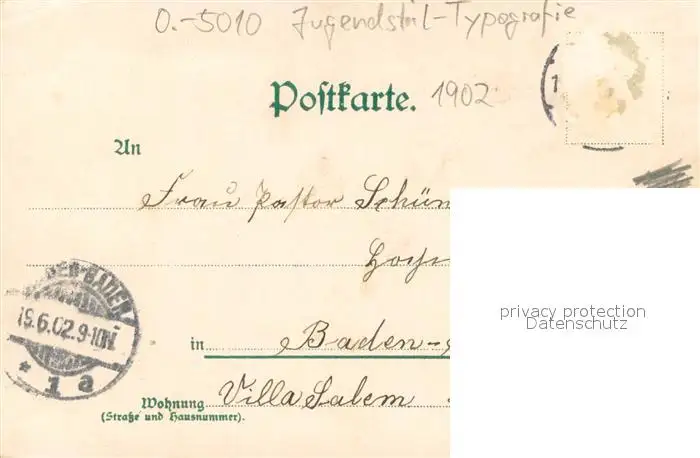 O.-5010 Jugendstil-Typografie
Postkarte. 1902
An
Frau Pastor Schün
in Baden-
Wohnung Villa Salem
(Straße und Hausnummer).
DEN-BADEN
19.6.02.9-10N.
* 1 a
privacy protection
Datenschutz